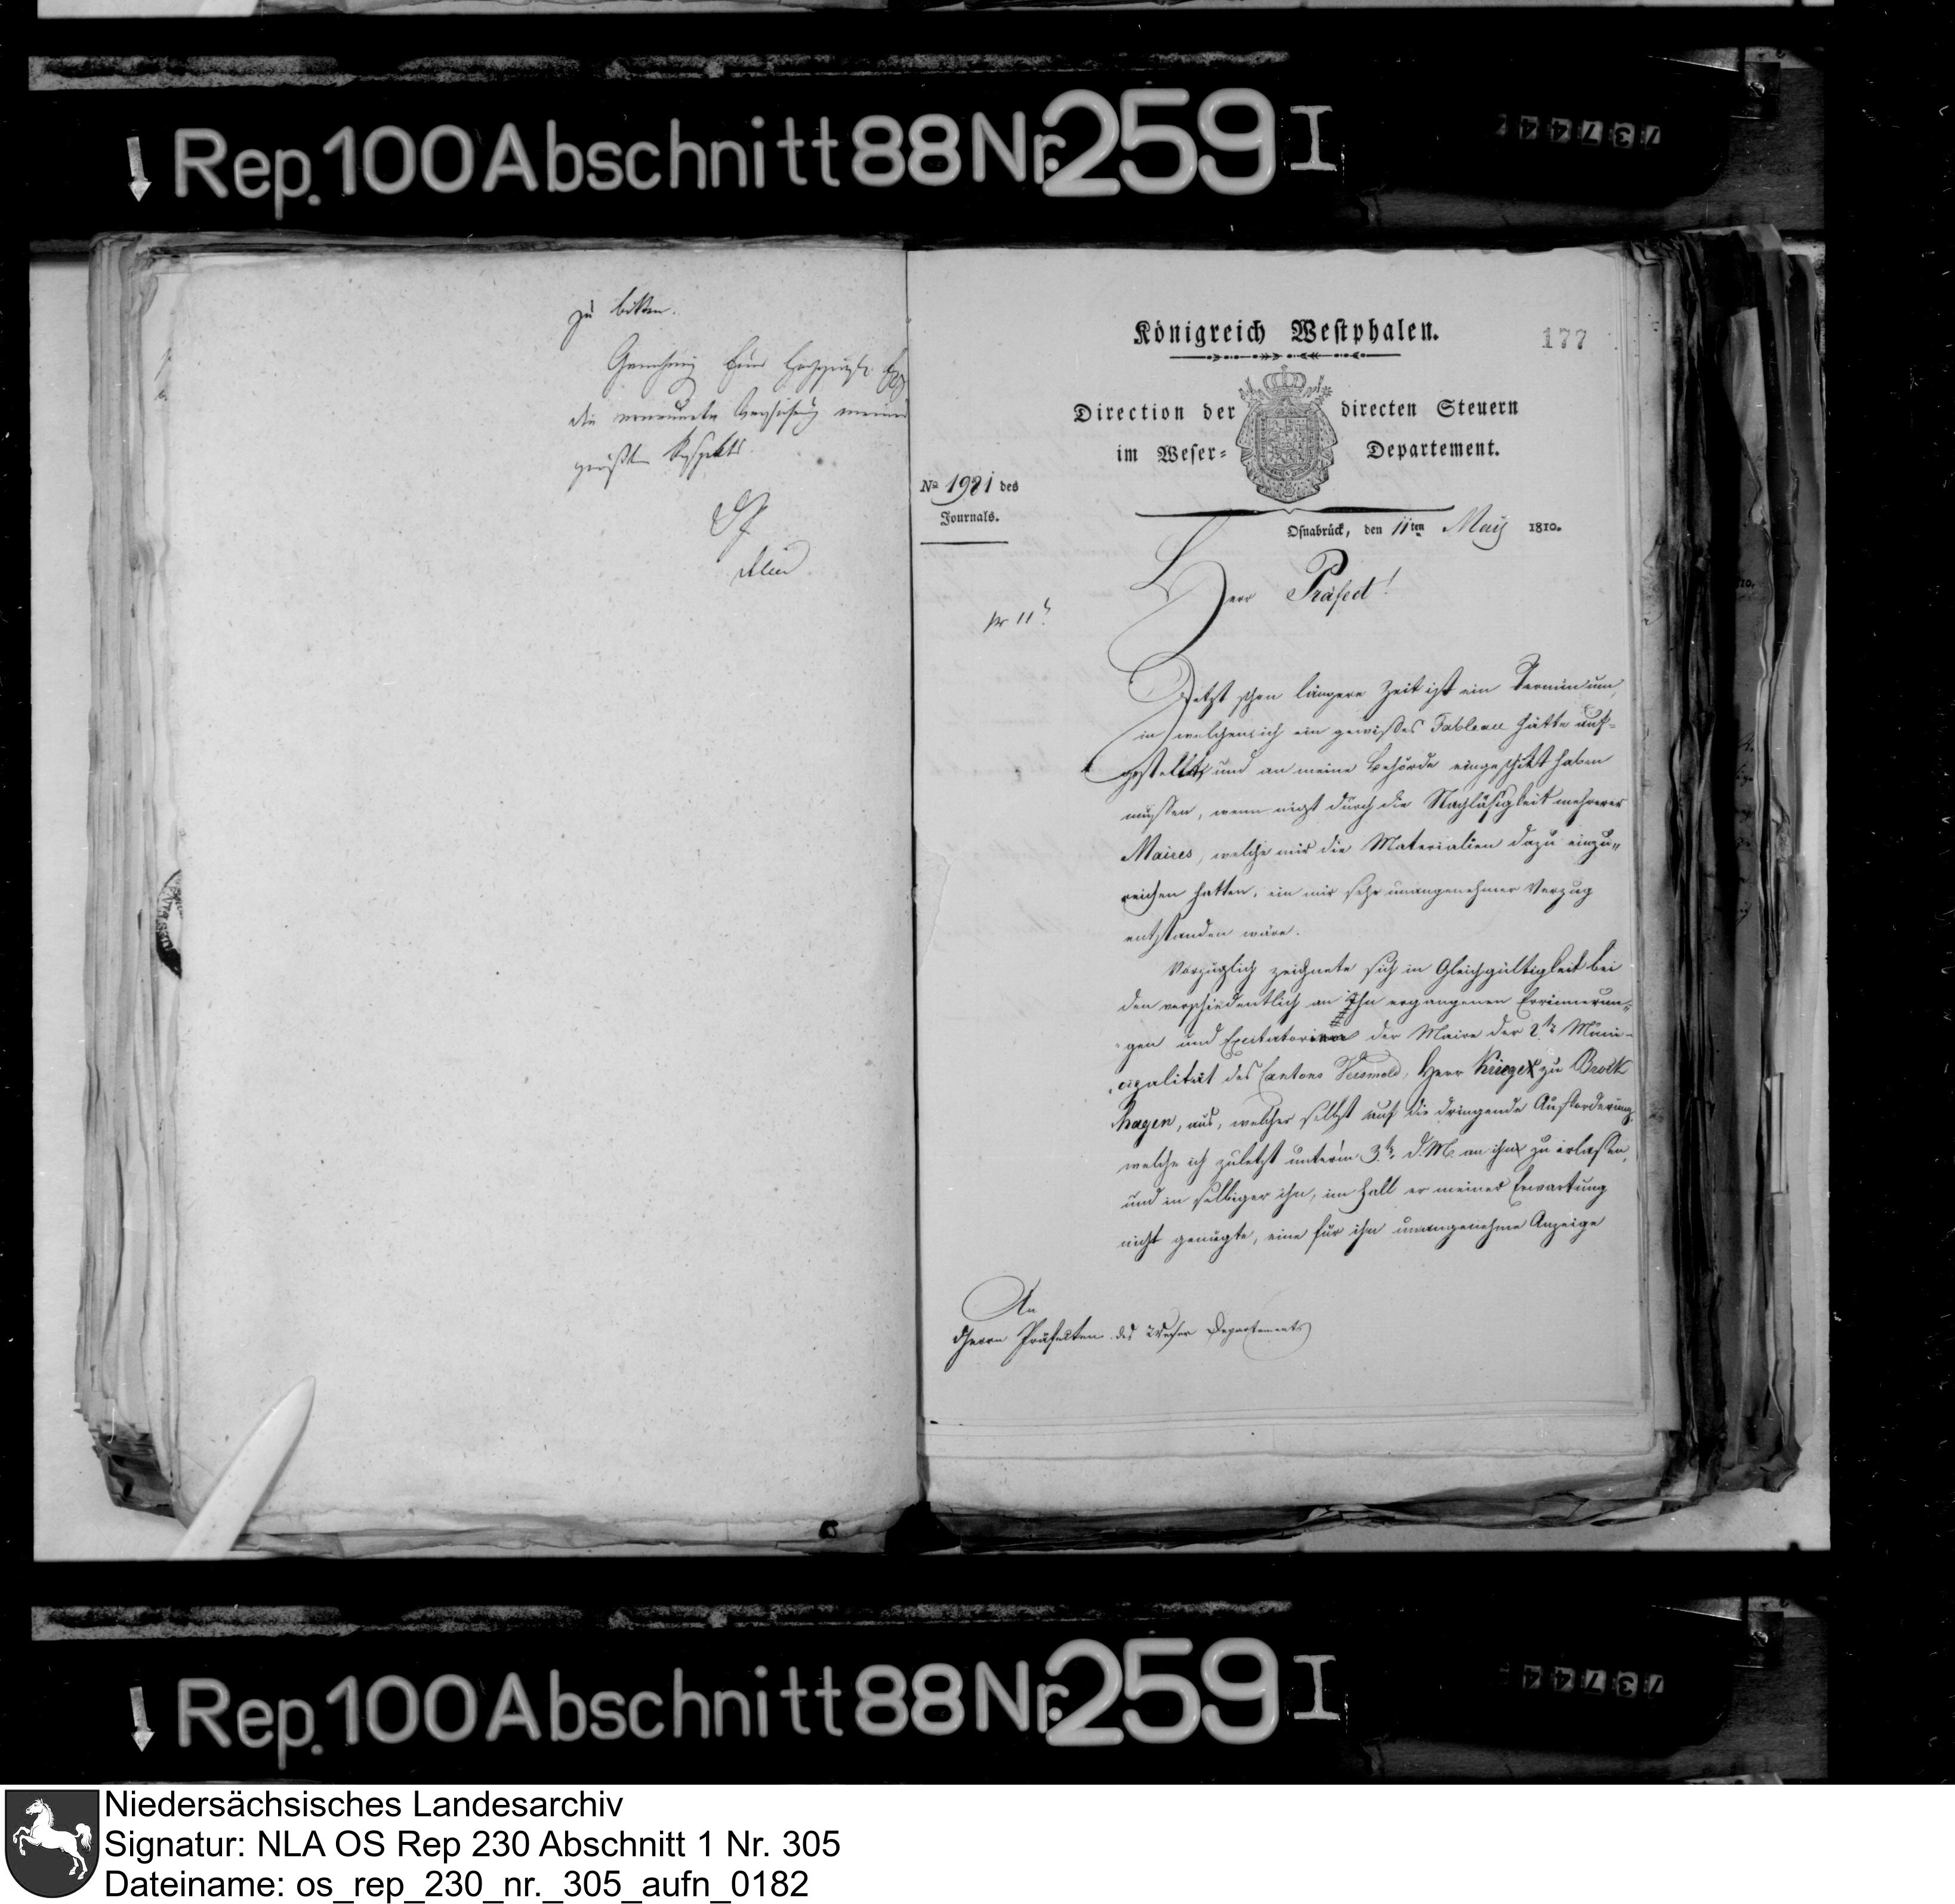 Rep. 100 Abschnitt 88 Nr. 259 I
zu bitten.
Genehmig
die erneuerte Versicherung meines
größten Respekts.
177
Königreich Westphalen.
Direction der directen Steuern
im Weser- Departement.
No 1981 des
Journals.
Osnabrück, den 11ten May 1810.
Herr Präfect!
Jetzt schon längere Zeit ist ein Terminum,
in welchen ich ein gewißes Tableau hätte auf-
gestellt und an meine Behörde eingeschikt haben
müssen, wenn nicht durch die Nachläßigkeit mehrerer
Maires, welche mir die Materialien dazu einzu-
reichen hatten, ein mir sehr unangenehmer Verzug
entstanden wäre.
Vorzüglich zeichnete sich in Gleichgültigkeit bei
den verschiedentlich an Ihn ergangenen Errinnerun-
gen und Excitatorien der Maire der 2t. Muni-
cipalität des Cantons Versmold, Herr Krieger zu Brock
hagen, aus, welcher selbst auf die dringende Aufforderung,
welche ich zuletzt unterm 3t. d. M. an ihn zu erlassen,
und in selbiger ihn, im Fall er meiner Erwartung
nicht genügte, eine für ihn unangenehme Anzeige
An
dHerrn Präfekten des Weser Departements
Rep. 100 Abschnitt 88 Nr. 259 I
Niedersächsisches Landesarchiv
Signatur: NLA OS Rep 230 Abschnitt 1 Nr. 305
Dateiname: os_rep_230_nr._305_aufn_0182